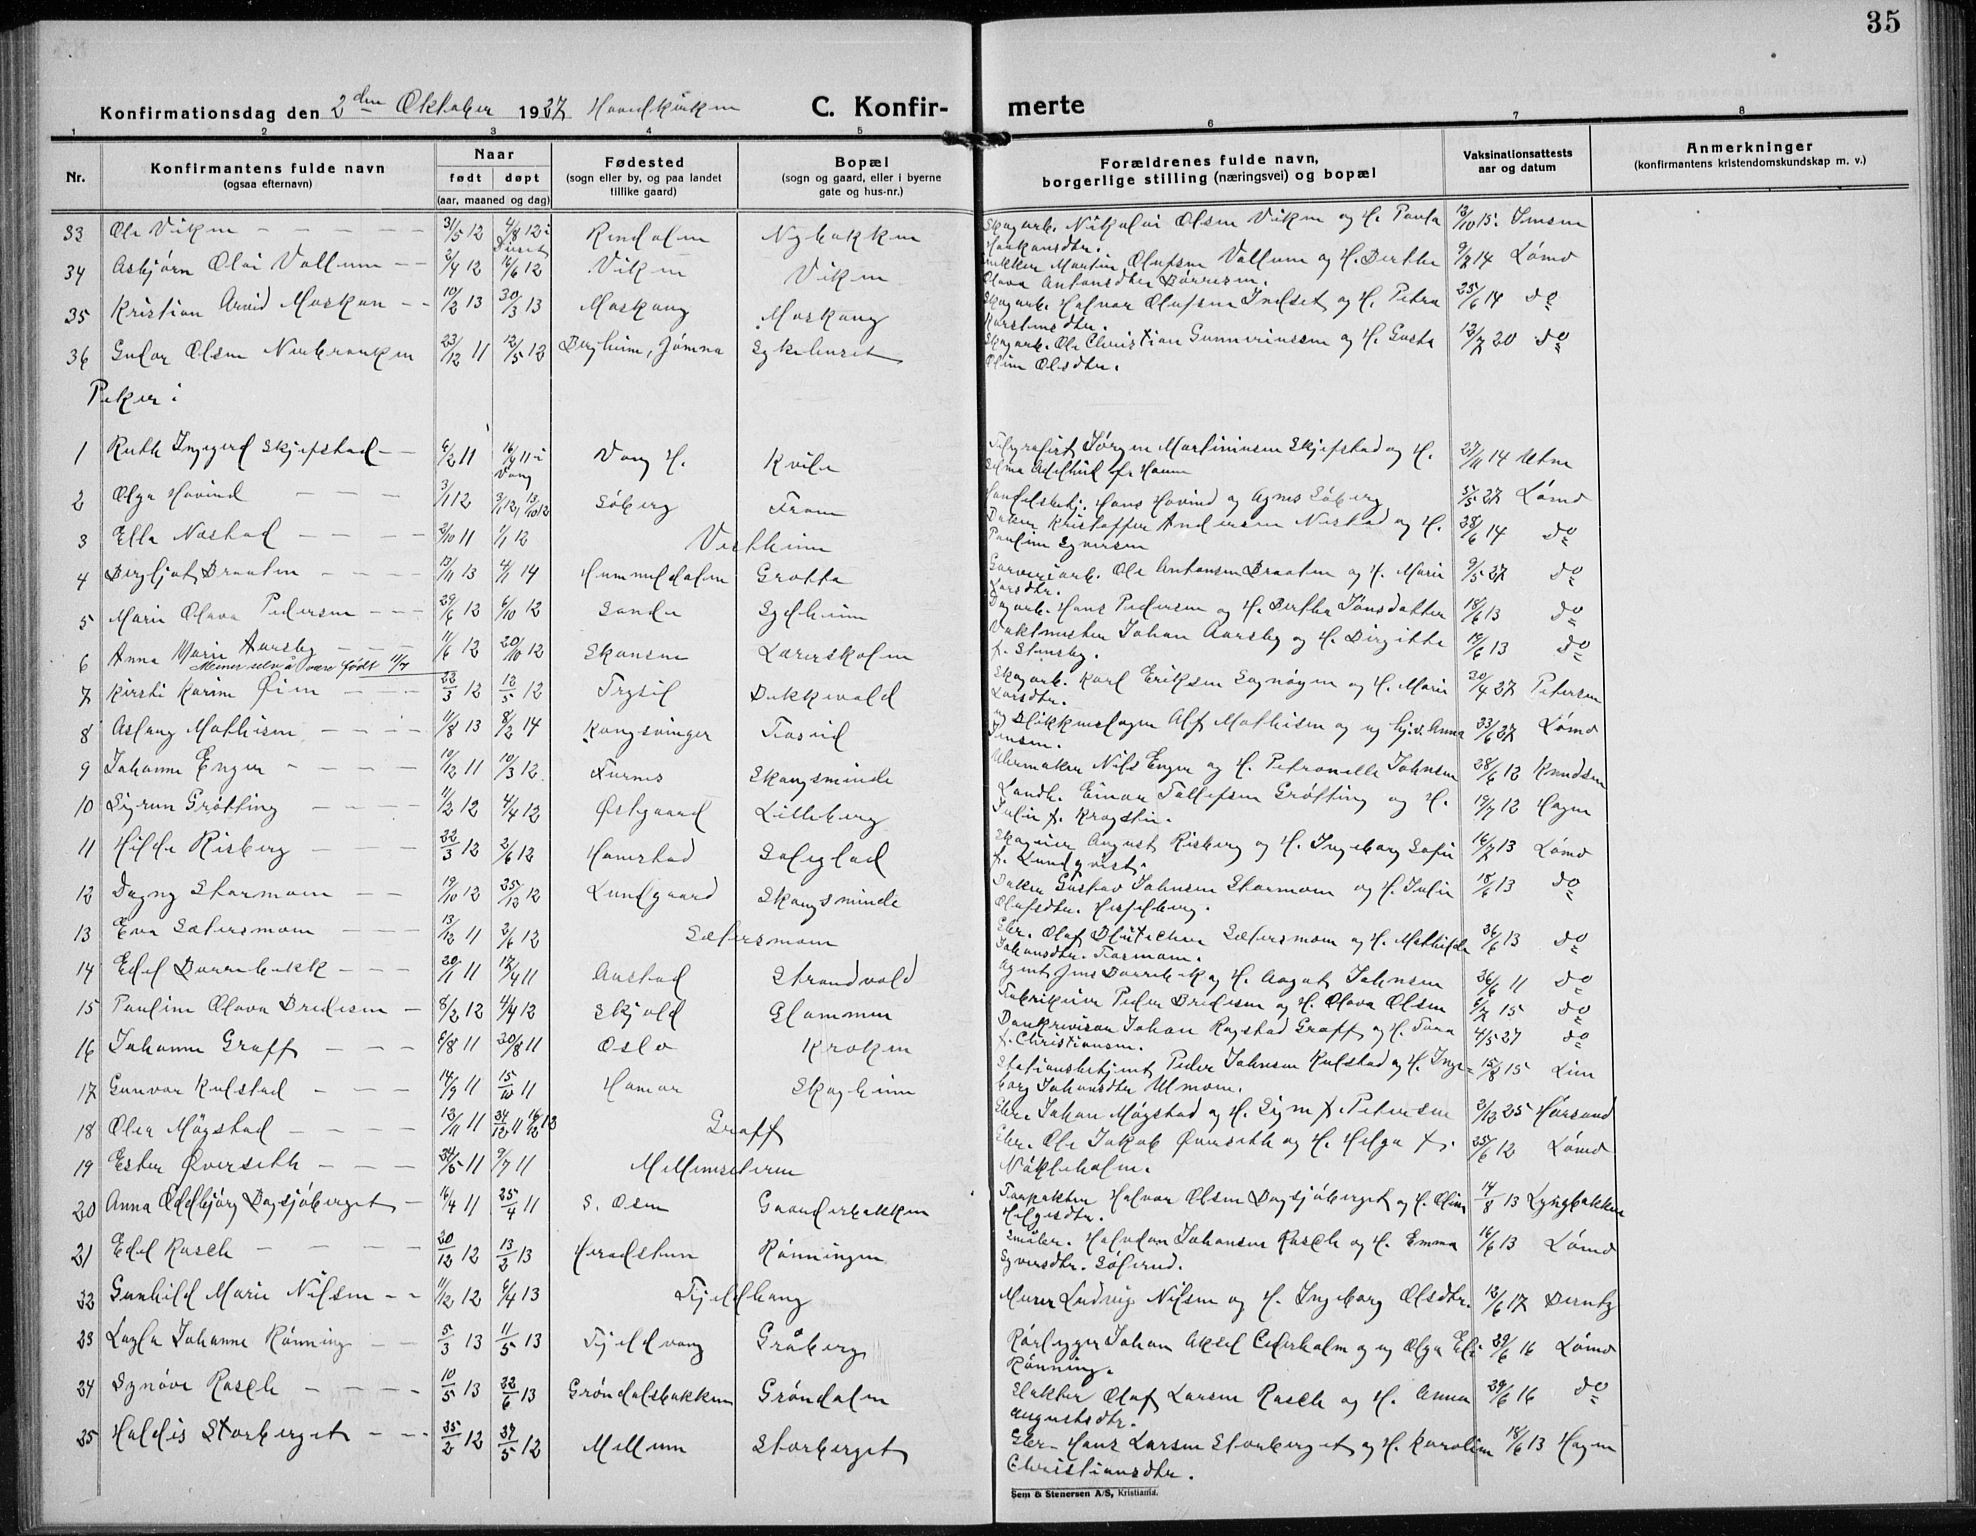 35
Konfirmationsdag den 2den Oktober 1927 Hovedkirken C. Konfir- merte
1 2 3 4 5 6 7 8
Nr. Konfirmantens fulde navn (ogsaa efternavn) Naar født døpt (aar, maaned og dag) Fødested (sogn eller by, og paa landet tillike gaard) Bopæl (sogn og gaard, eller i byerne gate og hus-nr.) Forældrenes fulde navn, borgerlige stilling (næringsvei) og bopæl Vaksinationsattests aar og datum Anmerkninger (konfirmantens kristendomskundskap m. v.)
33 Ole Viken 31/5 12 4/8 12 i Nybakken Skogarb. Nikolai Olsen Viken og H. Paula Haakonsdtr. 13/10 15 Imsen
34 Asbjørn Olai Vollum 2/4 12 16/6 12 Viken Viken Martin Olufsen Vollum og H. Berthe Olava Antonsdtr 9/7 14 Lømo
35 Kristian Arvid Moskon 10/2 13 30/3 13 Moskaug Moskaug Skogarb. Halvor Olufsen Indset og H. Petra Karstensdtr. 25/6 14 do
36 Olsen 23/12 11 12/5 12 Bergheim, Jømna Sykehuset Skogarb. Ole Christian og H. Gusta Oline Olsdtr. 12/7 20 do
Piker:
1 Ruth Ingegerd Skjefstad 6/2 11 16/4 11 i Vang Vang H. Kvile Telegrafist Jørgen Martiniusen Skjefstad og H. 27/11 14 Utne
2 Olga Hovind 3/1 12 Søberg From Handelsbetj. Hans Hovind og Agnes Søberg 5/5 27 Lømo
3 Ella Næstad 2/10 11 1/1 12 Vestheim Baker Kristoffer Andersen Næstad og H. Pauline Syversen 28/6 14 do
4 Bergljot Braaten 13/11 13 4/1 14 Hummeldalen Grotta Garveriarb. Ole Antonsen Braaten og H. Marie Larsdtr. 9/5 27 do
5 Marie Olava Pedersen 29/6 12 6/10 12 Sande Sydheim Dagarb. Hans Pedersen og H. Berthe Jonsdatter 18/6 13 do
6 Anna Marie Aarsby 11/6 12 20/10 12 Skansen Lærerskolen Vaktmester Johan Aarsby og H. Birgitte f. Stensby. 19/6 13 do
Mener selv å være født 11/7
7 Kirsti Karine Øien 22/3 12 12/5 12 Trysil Bekkevold Skogarb. Karl Eriksen og H. Marie Larsdtr. 20/4 27 Petersen
8 Aslaug Mathisen 11/8 13 8/2 14 Kongsvinger Blikkenslager Alf Mathisen og Anna Jensen. 23/6 27 Lømo
9 Johanne Enger 10/12 11 10/3 12 Furnes Skogsminde Uhrmaker Nils Enger og H. Petronelle Johnsen 28/6 12 Knudsen
10 Sigrun Grøtting 11/2 12 4/4 12 Østgaard Lilleberg Landh. Einar Tollefsen Grøtting og H. Julie f. 19/7 12 Hagen
11 Hilde Risberg 22/3 12 2/6 12 Hanestad Soleglad August Risberg og H. Ingeborg Sofie f. Lundqvist. 16/7 13 Lømo
12 Dagny Stormoen 19/10 12 25/12 12 Lundgaard Skogsminde Baker Gustav Johnsen Stormoen og H. Julie Olafsdtr. Hesselberg. 18/6 13 do
13 Eva Sætersmoen 13/12 11 2/6 12 Sætersmoen Gbr. Olaf Sætersmoen og H. Mathilde Johansdtr. 26/6 13 do
14 Edel Borrebekk 20/1 11 17/4 11 Aastad Strandvold Agent Jens Borrebek og H. Aagot Johnsen 26/6 11 do
15 Pauline Olava Bredesen 8/2 12 4/4 12 Skjold Glommen Fabrikeier Peder Bredesen og H. Olava Olsen 6/7 15 do
16 Johanne Graff 6/8 11 20/8 11 Oslo Kroken Bankrevisor Johan Rogstad Graff og H. f. Christiansen. 4/5 27 do
17 Gunvor Kulstad 14/9 11 15/10 11 Hamar Skogheim Stationsbetjent Peder Johnsen Kulstad og H. Ingeborg Johansdtr Ulmoen. 15/8 15 Lien
18 Olea Møystad 13/11 11 24/12 11 Graff Gbr. Johan Møystad og H. Signe f. Petersen 2/12 25
19 Ester Øverseth 24/5 11 9/7 11 Gbr. Ole Jakob Øverseth og H. Helga f. Nökleholm. 25/6 12 Lømo
20 Anna Oddbjørg Bergsjøberget 16/4 11 25/4 11 S. Osen Graaderbakken Forpakter Halvor Olsen og H. Oline Helgesdtr. 14/8 13 Lyngbakken
21 Edel Rasch 20/12 12 13/2 13 Heradstun Rønningen Halvdan Johansen Rasch og H. Emma Syversdtr. 16/6 13 Lømo
22 Gunhild Marie Nilsen 11/12 12 6/4 13 Fjeldhaug Murer Ludvig Nilsen og H. Ingeborg Olsdtr. 12/6 17 Berntz
23 Layla Johanne Rønning 5/3 13 11/5 13 Fjeldvang Gråberg Rørlegger Johan Aksel Cederholm og Olga Elise Rønning. 29/6 16 Lømo
24 Synøve Rasch 10/5 13 22/6 13 Grøndalsbakken Grøndalen Slakter Olaf Larsen Rasch og H. Anna Augustsdtr. 29/6 16 do
25 Haldis Storberget 25/2 12 27/5 12 Mellum Storberget Gbr. Hans Larsen Storberget og H. Karoline Christiansdtr. 18/6 13 Hagen
Sem & Stenersen A/S, Kristiania.